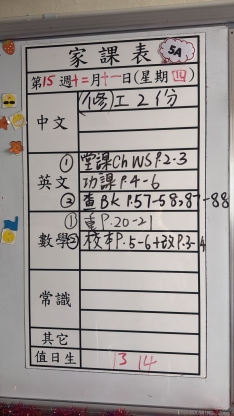 家課表
5A
第15週十二月十一日(星期四)
中文
(修)工2份
英文
① 堂課Ch WS P.2-3
功課 P.4-6
② 查BK P.57-58,87-88
數學
① 重P.20-21
② 校本P.5-6+改P.3-4
常識
其它
值日生
13 14